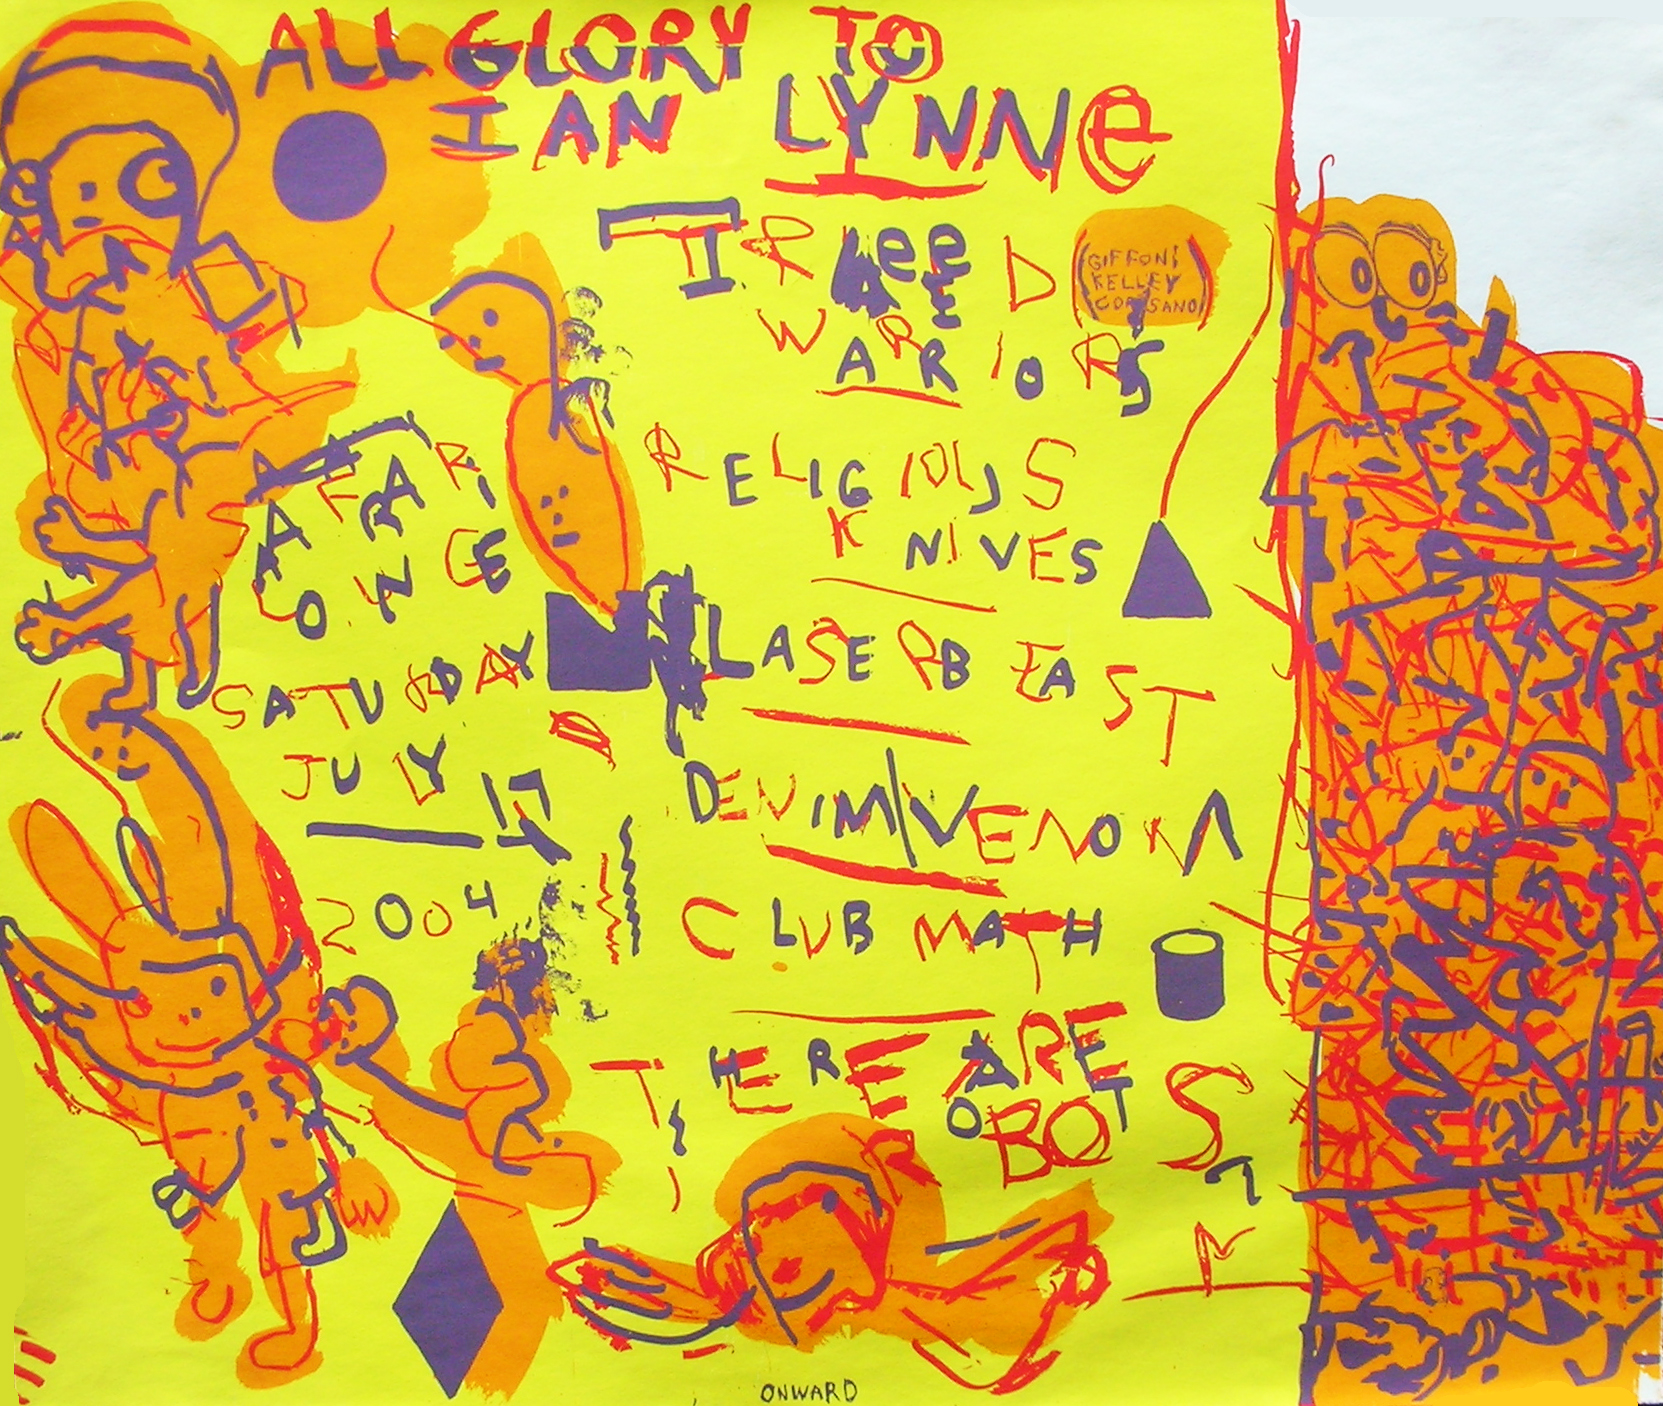 ALL GLORY TO
IAN LYNNe
TIReeD
WARRIORS
(GIFFONi
KELLEY
CORSANO)
RELIGIOUS
KNIVES
SAFARI
LOWNGE
SATURDAY
JULY 17
2004
LASERBEAST
DENIM/VENOM
CLUB MATH
THERE ARE
ROBOTS
ONWARD